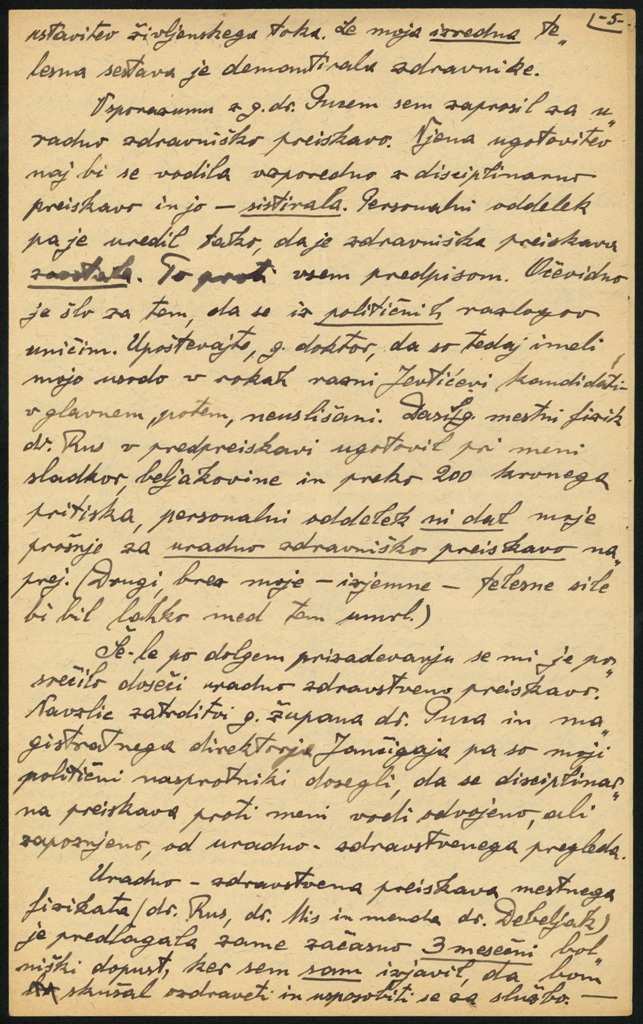 -5-
ustavitev življenskega toka. Le moja izredna te„
lesna sestava je demantirala zdravnike.
Vsporazumu z g. dr. Pucem sem zaprosil za u„
radno zdravniško preiskavo. Njena ugotovitev
naj bi se vodila vzporedno z disciplinarno
preiskavo in jo – sistirala. Personalni oddelek
pa je uredil tako, da je zdravniška preiskava
zaostala. To proti vsem predpisom. Očevidno
je šlo za tem, da se iz političnih razlogov
uničim. Upoštevajte, g. doktor, da so tedaj imeli
mojo usodo v rokah razni Jevtićevi kandidati –
v glavnem, potem, neuslišani. Dasi g. mestni fizik
dr. Rus v predpreiskavi ugotovil pri meni
sladkor, beljakovine in preko 200 krvnega
pritiska, personalni oddelek ni dal moje
prošnje za uradno zdravniško preiskavo na„
prej. (Drugi, brez moje – izjemne – telesne sile
bi bil lahko med tem umrl.)
Še-le po dolgem prizadevanju se mi je po„
srečilo doseči uradno zdravstveno preiskavo.
Navzlic zatrditvi g. župana dr. Puca in ma„
gistratnega direktorja Jančigaja pa so moji
politični nasprotniki dosegli, da se disciplinar„
na preiskava proti meni vodi odvojeno, ali
zapoznjeno, od uradno-zdravstvenega pregleda.
Uradno-zdravstvena preiskava mestnega
fizikata (dr. Rus, dr. Mis in menda dr. Debeljak)
je predlagala zame začasno 3 mesečni bol„
niški dopust, ker sem sam izjavil, da bom
skušal ozdraveti in usposobiti se za službo. –